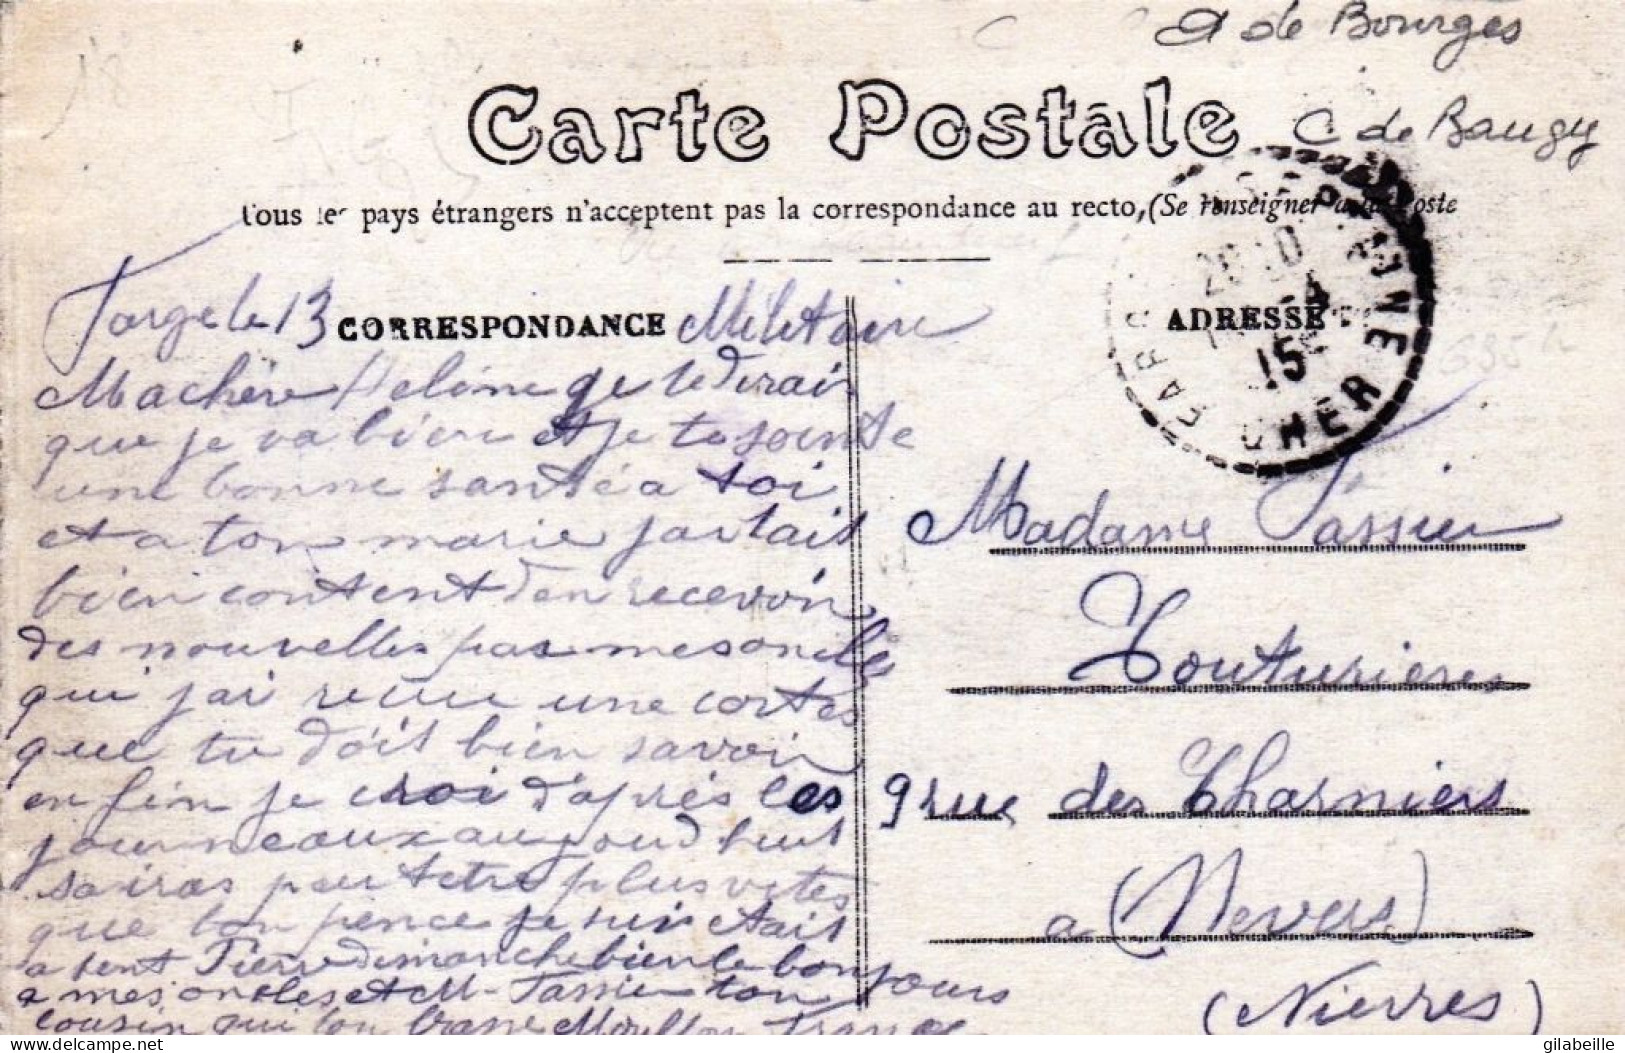 A de Bourges
Carte Postale
C de Baugy
Tous les pays étrangers n'acceptent pas la correspondance au recto, (Se renseigner à la Poste
Farge le 13 CORRESPONDANCE Militaire
Ma chère Helène ge te dirais
que je va bien et je te souente
une bonne santé a toi
et a ton marie jartais
bien content den recevoir
des nouvelles pas mes oncles
qui j'ai recue une cortes
que tu dois bien savoir
enfin je croi d'après les
journeaux aujourdhuit
soiras peut etre plus vites
que lon pence je suis etais
a sent Pierre dimanche bien le bonjours
a mes oncles et M- Tassier ton
cousin qui ton brasse Moulton France
ADRESSE
FARGES
15
CHER
Madame Tassier
Couturieres
9 rue des Charniers
a (Nevers)
(Nierres)
delcampe.net
gilabeille